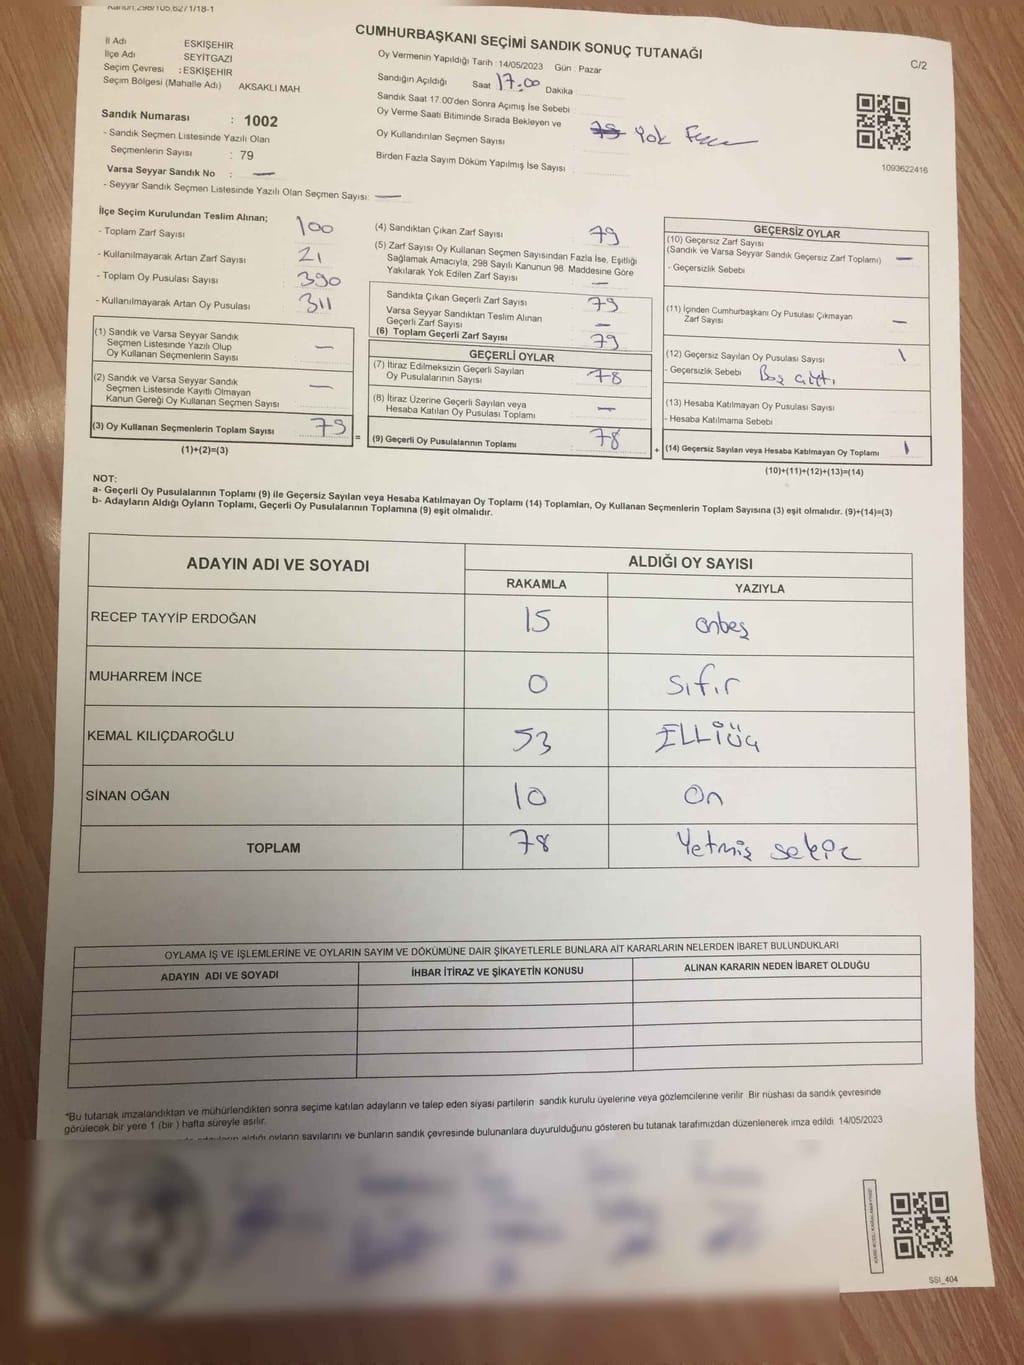 Kanun:298/105.627/1/18-1
CUMHURBAŞKANI SEÇİMİ SANDIK SONUÇ TUTANAĞI
C/2
İl Adı ESKİŞEHİR
İlçe Adı SEYİTGAZİ
Seçim Çevresi : ESKİŞEHİR
Seçim Bölgesi (Mahalle Adı) AKSAKLI MAH.
Sandık Numarası : 1002
- Sandık Seçmen Listesinde Yazılı Olan
Seçmenlerin Sayısı : 79
Varsa Seyyar Sandık No : —
- Seyyar Sandık Seçmen Listesinde Yazılı Olan Seçmen Sayısı: —
Oy Vermenin Yapıldığı Tarih : 14/05/2023 Gün : Pazar
Sandığın Açıldığı Saat 17.00 Dakika
Sandık Saat 17.00'den Sonra Açımış İse Sebebi
Oy Verme Saati Bitiminde Sırada Bekleyen ve
Oy Kullandırılan Seçmen Sayısı Yok
Birden Fazla Sayım Döküm Yapılmış İse Sayısı
1093622416
İlçe Seçim Kurulundan Teslim Alınan;
- Toplam Zarf Sayısı 100
- Kullanılmayarak Artan Zarf Sayısı 21
- Toplam Oy Pusulası Sayısı 390
- Kullanılmayarak Artan Oy Pusulası 311
(1) Sandık ve Varsa Seyyar Sandık
Seçmen Listesinde Yazılı Olup
Oy Kullanan Seçmenlerin Sayısı —
(2) Sandık ve Varsa Seyyar Sandık
Seçmen Listesinde Kayıtlı Olmayan
Kanun Gereği Oy Kullanan Seçmen Sayısı —
(3) Oy Kullanan Seçmenlerin Toplam Sayısı 79
(1)+(2)=(3)
=
(4) Sandıktan Çıkan Zarf Sayısı 79
(5) Zarf Sayısı Oy Kullanan Seçmen Sayısından Fazla İse, Eşitliği
Sağlamak Amacıyla, 298 Sayılı Kanunun 98. Maddesine Göre
Yakılarak Yok Edilen Zarf Sayısı —
Sandıkta Çıkan Geçerli Zarf Sayısı 79
Varsa Seyyar Sandıktan Teslim Alınan
Geçerli Zarf Sayısı —
(6) Toplam Geçerli Zarf Sayısı 79
GEÇERLİ OYLAR
(7) İtiraz Edilmeksizin Geçerli Sayılan
Oy Pusulalarının Sayısı 78
(8) İtiraz Üzerine Geçerli Sayılan veya
Hesaba Katılan Oy Pusulası Toplamı —
(9) Geçerli Oy Pusulalarının Toplamı 78
+
GEÇERSİZ OYLAR
(10) Geçersiz Zarf Sayısı
(Sandık ve Varsa Seyyar Sandık Geçersiz Zarf Toplamı) —
- Geçersizlik Sebebi
(11) İçinden Cumhurbaşkanı Oy Pusulası Çıkmayan
Zarf Sayısı —
(12) Geçersiz Sayılan Oy Pusulası Sayısı 1
- Geçersizlik Sebebi Boş çıktı
(13) Hesaba Katılmayan Oy Pusulası Sayısı
- Hesaba Katılmama Sebebi
(14) Geçersiz Sayılan veya Hesaba Katılmayan Oy Toplamı 1
(10)+(11)+(12)+(13)=(14)
NOT:
a- Geçerli Oy Pusulalarının Toplamı (9) ile Geçersiz Sayılan veya Hesaba Katılmayan Oy Toplamı (14) Toplamları, Oy Kullanan Seçmenlerin Toplam Sayısına (3) eşit olmalıdır. (9)+(14)=(3)
b- Adayların Aldığı Oyların Toplamı, Geçerli Oy Pusulalarının Toplamına (9) eşit olmalıdır.
ADAYIN ADI VE SOYADI ALDIĞI OY SAYISI
RAKAMLA YAZIYLA
RECEP TAYYİP ERDOĞAN 15 onbeş
MUHARREM İNCE 0 sıfır
KEMAL KILIÇDAROĞLU 53 ELLİÜÇ
SİNAN OĞAN 10 On
TOPLAM 78 Yetmiş sekiz
OYLAMA İŞ VE İŞLEMLERİNE VE OYLARIN SAYIM VE DÖKÜMÜNE DAİR ŞİKAYETLERLE BUNLARA AİT KARARLARIN NELERDEN İBARET BULUNDUKLARI
ADAYIN ADI VE SOYADI İHBAR İTİRAZ VE ŞİKAYETİN KONUSU ALINAN KARARIN NEDEN İBARET OLDUĞU
*Bu tutanak imzalandıktan ve mühürlendikten sonra seçime katılan adayların ve talep eden siyasi partilerin sandık kurulu üyelerine veya gözlemcilerine verilir. Bir nüshası da sandık çevresinde
görülecek bir yere 1 (bir ) hafta süreyle asılır.
aldığı oyların sayılarını ve bunların sandık çevresinde bulunanlara duyurulduğunu gösteren bu tutanak tarafımızdan düzenlenerek imza edildi. 14/05/2023
SSI_404